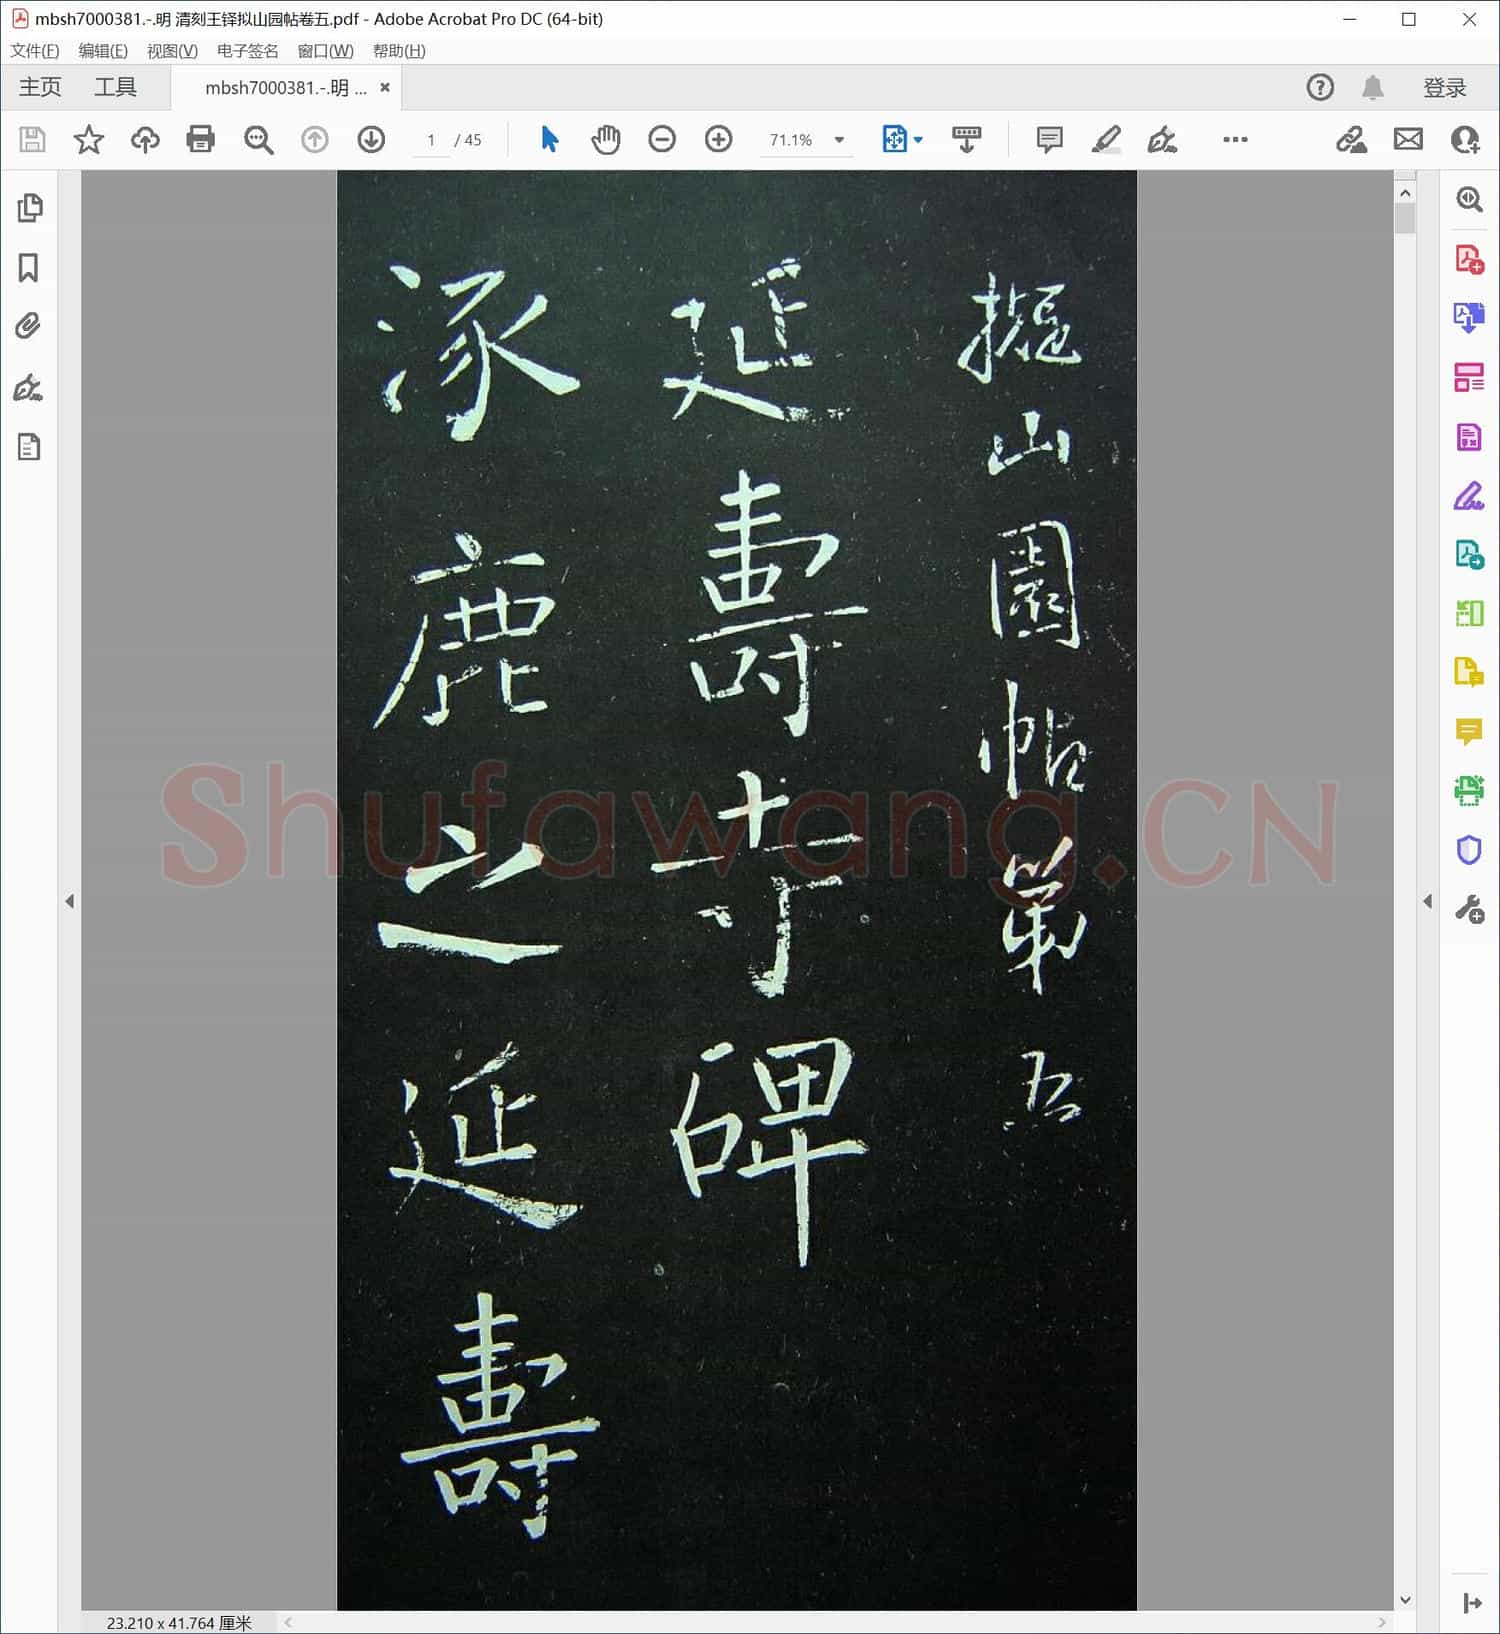 mbsh7000381.-.明 清刻王铎拟山园帖卷五.pdf - Adobe Acrobat Pro DC (64-bit)
文件(F) 编辑(E) 视图(V) 电子签名 窗口(W) 帮助(H)
主页 工具 mbsh7000381.-.明 ... 登录
1 / 45 71.1%
擬山園帖第五
延壽寺碑
涿鹿之延壽
Shufawang.CN
23.210 x 41.764 厘米